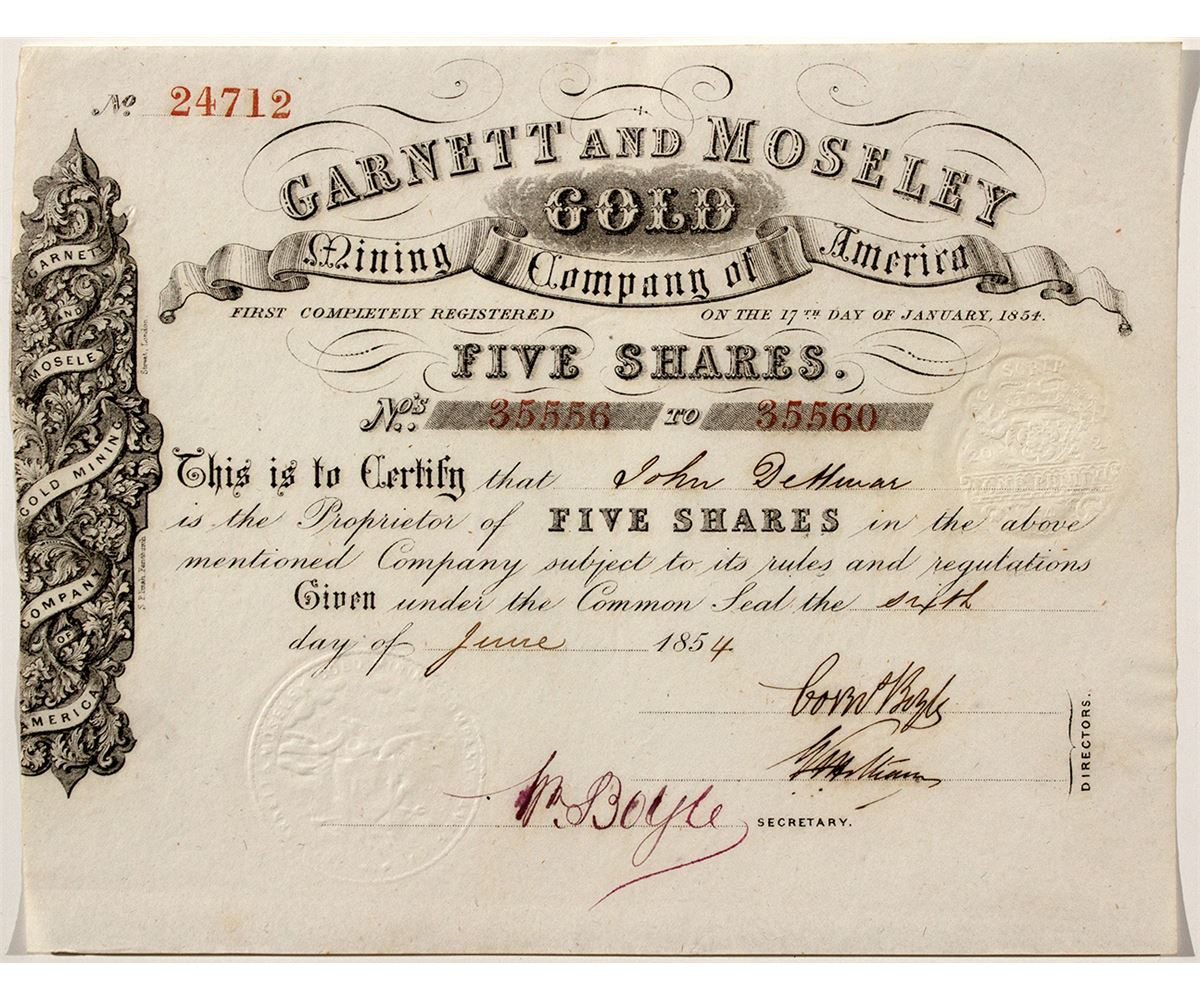 No 24712
GARNETT AND MOSELEY
GOLD
Mining Company of America
FIRST COMPLETELY REGISTERED ON THE 17TH DAY OF JANUARY, 1854.
FIVE SHARES.
No's. 35556 TO 35560
This is to Certify that John Dettmar
is the Proprietor of FIVE SHARES in the above
mentioned Company subject to its rules and regulations
Given under the Common Seal the sixth
day of June 1854
Boyle
DIRECTORS.
Wm Boyle SECRETARY.
GARNET
AND
MOSELE
GOLD MINING
OMPAN
OF
MERICA
London
SCRIP